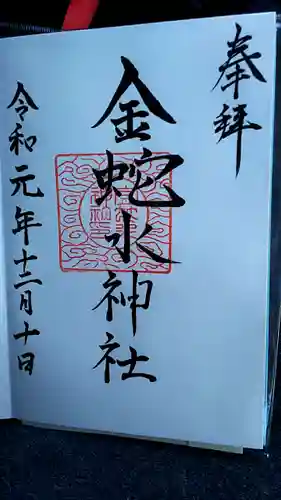 奉拝
金蛇水神社
令和元年十二月十日